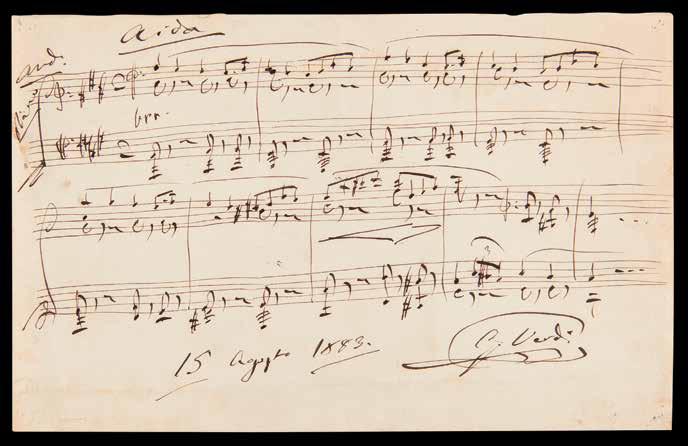 Aida
And.
brr.
3
15 Agosto 1883.
G. Verdi